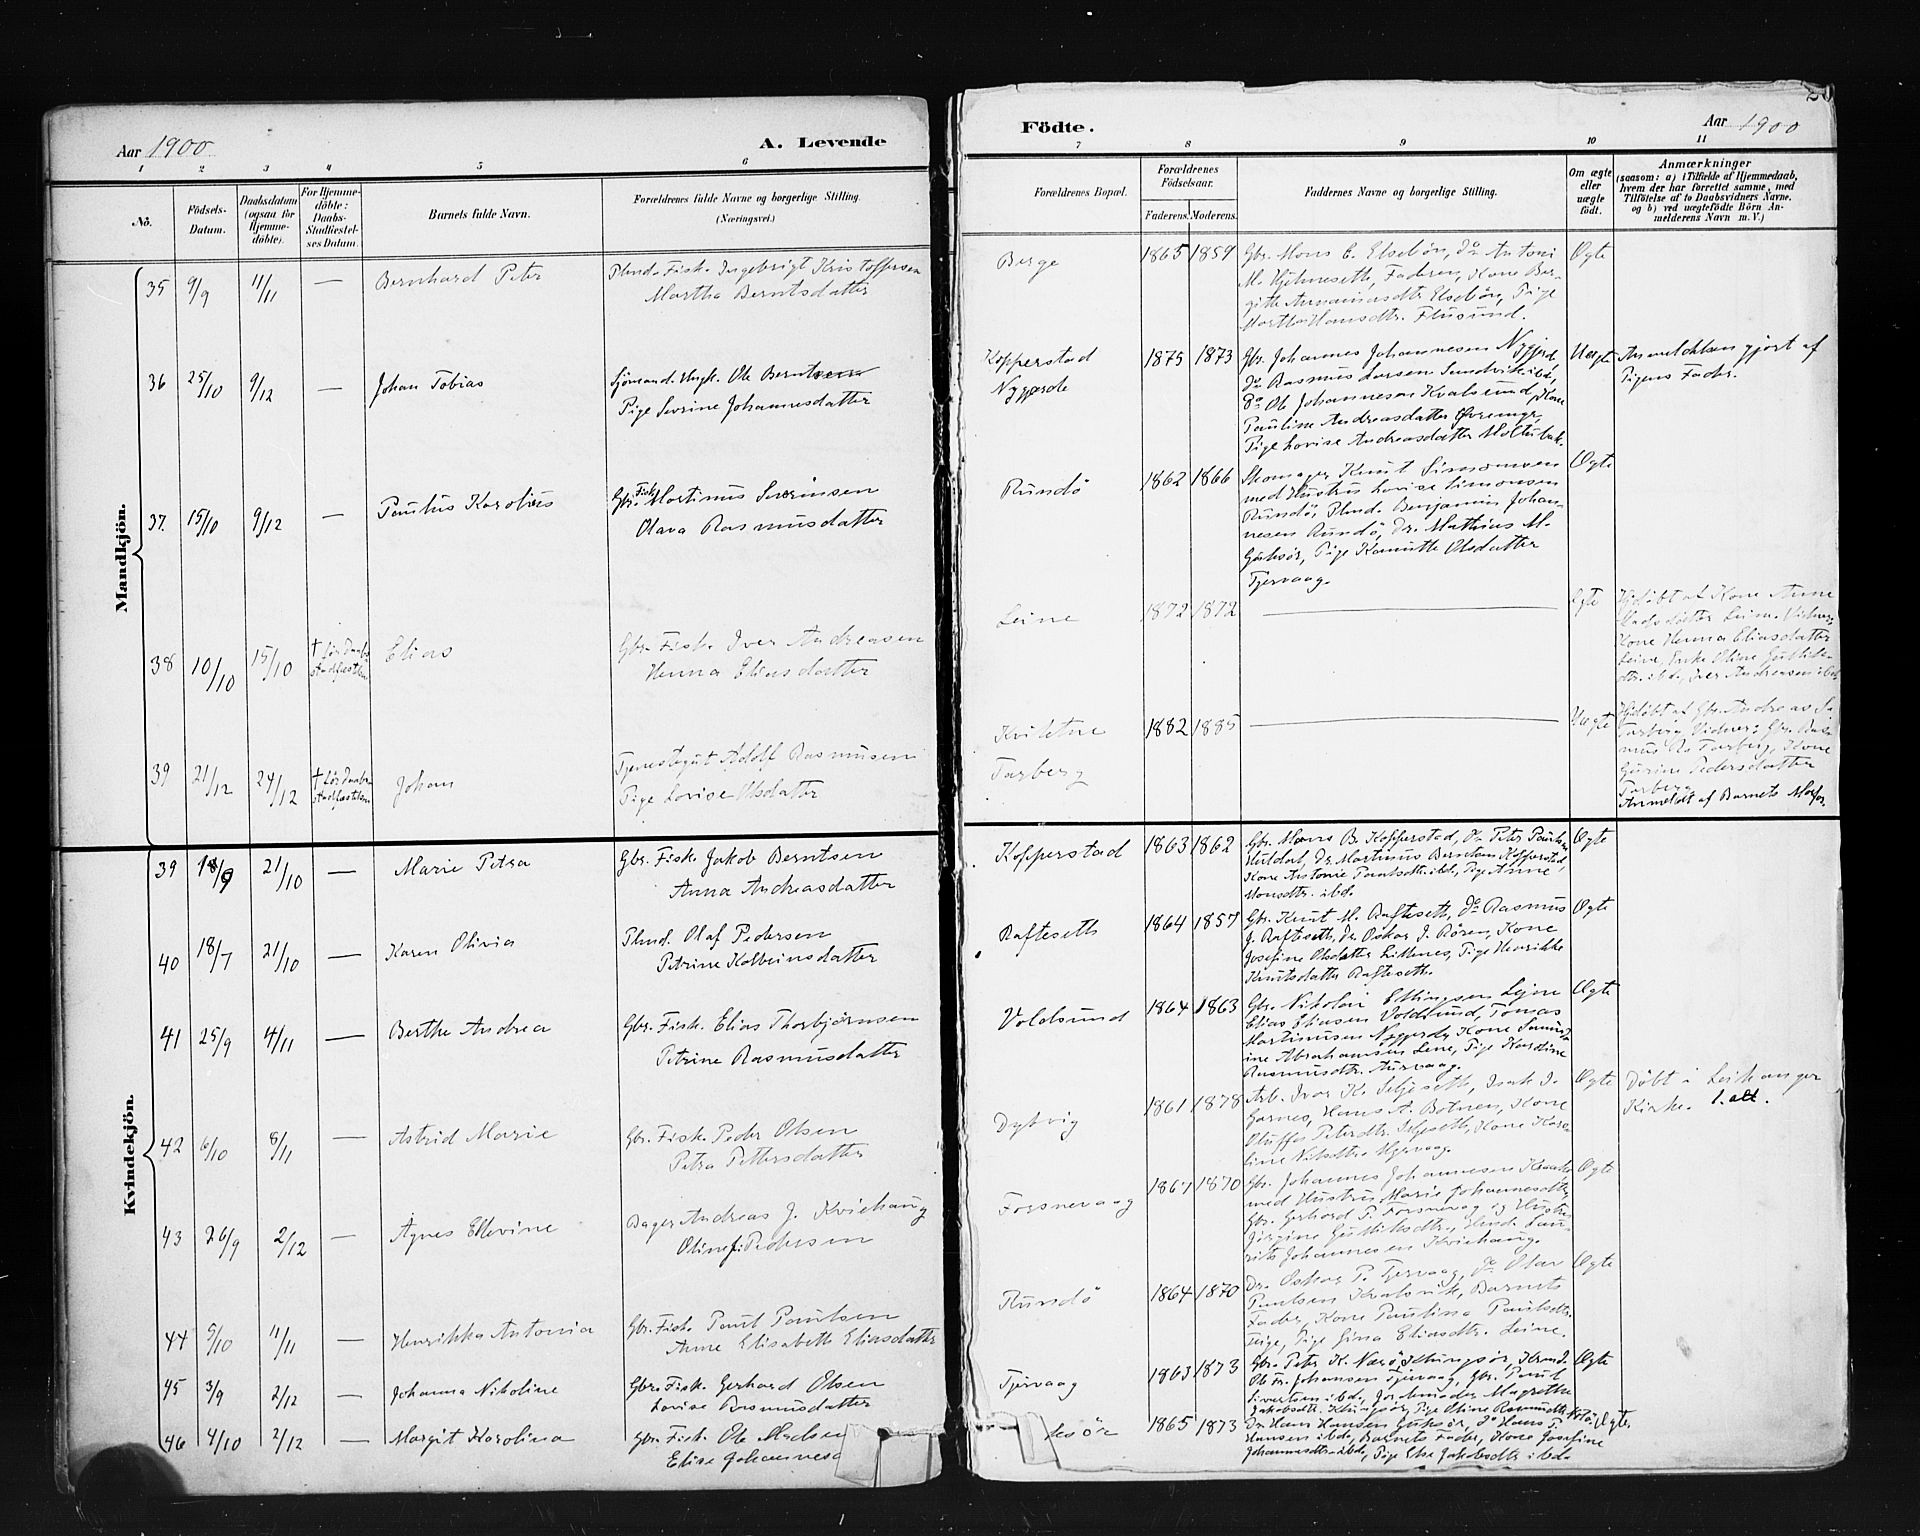 Aar 1900
A. Levende
1 2 3 4 5 6
Nô.
Födsels-
Datum.
Daabsdatum
(ogsaa for
Hjemme-
döbte).
For Hjemme-
döbte:
Daabs-
Stadfæstel-
ses Datum.
Barnets fulde Navn.
Forældrenes fulde Navne og borgerlige Stilling.
(Næringsvei.)
Mandkjön.
35 9/9 11/11 — Bernhard Peter
Plmd. Fisk. Ingebrigt Kristoffersen
Martha Berntsdatter
36 25/10 9/12 — Johan Tobias
Sjömand. Ungk. Ole Berntsen
Pige Sevrine Johannesdatter
37. 15/10 9/12 — Paulus Karolius
Gbr. Fisk. Martinus Severinsen
Olava Rasmusdatter
38 10/10 15/10 † før Daabs stadfæstelsen Elias
Gbr. Fisk. Iver Andreasen
Henna Eliasdatter
39 21/12 24/12 † før Daabs stadfæstelsen Johan
Tjenestegut Adolf Rasmussen
Pige Lovise Olsdatter
Kvindekjön.
39 18/9 21/10 — Marie Petra
Gbr. Fisk. Jakob Berntsen
Anna Andreasdatter
40 18/7 21/10 — Karen Olivia
Plmd. Olaf Pedersen
Petrine Kolbeinsdatter
41 25/9 4/11 — Berthe Andrea
Gbr. Fisk. Elias Thorbjørnsen
Petrine Rasmusdatter
42 6/10 8/11 — Astrid Marie
Gbr. Fisk. Peder Olsen
Petra Pettersdatter
43 26/9 2/12 — Agnes Ellevine
Bager Andreas J. Kviehaug
Oline Pedersen
44 5/10 11/11 — Henrikka Antonia
Gbr. Fisk. Paul Paulsen
Anne Elisabeth Eliasdatter
45 3/9 2/12 — Johanna Nikoline
Gbr. Fisk. Gerhard Olsen
Lovise Rasmusdatter
46 4/10 2/12 — Margit Karolina
Gbr. Fisk. Ole Madsen
Elise Johannesd
Födte.
Aar 1900
7 8 9 10 11
Forældrenes Bopæl.
Forældrenes
Födselsaar.
Faderens. Moderens.
Faddernes Navne og borgerlige Stilling.
Om ægte
eller
uægte
födt.
Anmærkninger
(saasom: a) i Tilfælde af Hjemmedaab,
hvem der har forrettet samme, med
Tilföielse af to Daabsvidners Navne.
og b) ved uægtefödte Börn An-
melderens Navn m. V.)
Berge 1865 1859
Gbr. Mons E. Elsebøn, do Antoni
M. Hjelmeseth, Faderen, Kone Ber-
gitte Elsebøn, Pige
Martha Hansdtr. Flusund.
Ægte
Kopperstad
Nygjerde
1875 1873
Gbr. Johannes Johannesen Nygjerd
do Rasmus Larsen Sandvik ibd,
do Ole Johannesen Kvalsund, Kone
Pauline Andreasdatter
Pige Lovise Andreasdatter
Uægte
Anmeldelsen gjort af
Pigens Fader.
Rundö 1862 1866
Skomager Knut Simonsen
med Hustru Lovise Simonsen
Rundö, Plmd. Benjamin Johan-
nesen Rundö, Dr. Mathias M.
Pige Olsdatter
Tjervaag.
Ægte
Leine 1872 1872 —
Ægte
Hjdøbt af Kone Anne
Madsdatter Leine. Vidner,
Kone Henna Eliasdatter
Leine, Enke Oline
dtr. ibd, Iver Andreasen ibd.
Tarberg
1882 1885 —
Uægte
Hjdøbt af Gbr. Andreas
Tarberg, Vidner: Gbr. Ras-
mus R. Tarberg, Kone
Gurine Pedersdatter
Tarberg
Anmeldt af Barnets Morfar.
Kopperstad 1863 1862
Gbr. Mons B. Kopperstad, do Peter
Dr. Martinus Berntsen Kopperstad,
Kone Antonie Paulsdtr. ibd, Pige Anne
Monsdtr. ibd.
Ægte
Rafteseth 1864 1857
Gbr. Knut M. Rafteseth, do Rasmus
J. Rafteseth, Dr. Oskar J. Røren, Kone
Josefine Olsdatter Pige Henrikke
Knutsdatter Rafteseth.
Ægte
Voldsund 1864 1863
Gbr. Nikolai Ellingsen
Elias Eliasen Voldsund, Tomas
Martinusen Nygjerde, Kone
Abrahamsen Leine, Pige Karoline
Rasmusdtr. Aurvaag.
Ægte
Dybvig 1861 1878
Arb. Ivar K. Seljeseth, Isak I.
Garnes, Hans A. Botnen, Kone
Oluffa Petersdtr. Seljeseth, Kone Karo-
line
Ægte
Döbt i Leikanger
Kirke. 1. alt.
Forsnevaag 1867 1870
Gbr. Johannes Johannesen
med Hustru Marie Johannesdtr,
Gbr. Gerhard P. Forsnevag og Hustru
Jörgine
Johannesen Kviehaug.
Ægte
Rundö 1864 1870
Dr. Oskar P. Tjervaag, do Olav
Paulsen Kvalsvik, Barnets
Fader, Kone Paulina Paulsdtr.
Teige, Pige Gina Eliasdtr. Leine.
Ægte
Tjervaag 1863 1873
Gbr. Peter K.
Ole Fr. Johansen Tjervaag, Gbr. Paul
Sivertsen ibd, Jordemoder Magrethe
Jakobsdtr. Pige Oline Rasmusdtr.
Ægte
1865 1873
Dr. Hans Hansen do Hans P.
Hansen ibd, Barnets Fader, Kone Josefine
Johannesdtr. ibd, Pige Else Jakobsdtr. ibd.
Ægte